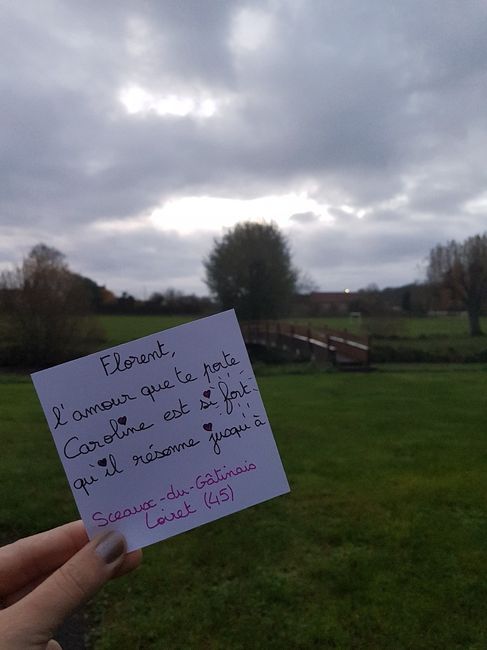 Florent,
l'amour que te porte
Caroline est si fort
qu'il résonne jusqu'à
Sceaux-du-Gâtinais
Loiret (45)